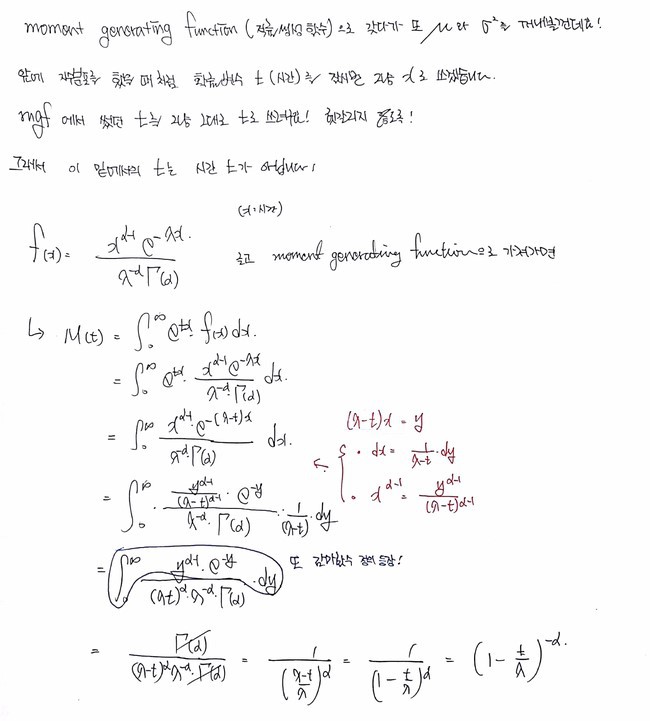 moment generating function (적률생성함수)으로 갖다가 또 μ와 σ²을 꺼내볼건데요!
앞에 지수분포를 했을 때처럼 확률변수 t (시간)을 잠시만 그냥 x로 쓰겠습니다.
mgf 에서 썼던 t를 그냥 그대로 t로 쓰려구요! 헷갈리지 않도록!
그래서 이 밑에서의 t는 시간 t가 아닙니다!
(x=시간)
f(x) = x^{α-1} e^{-λx} / λ^{-α} Γ(α) moment generating function으로 가져가면
↳ M(t) = ∫₀^∞ e^{tx} · f(x) dx.
= ∫₀^∞ e^{tx} · x^{α-1} e^{-λx} / λ^{-α} · Γ(α) dx.
= ∫₀^∞ x^{α-1} · e^{-(λ-t)x} / λ^{-α} · Γ(α) dx.
(λ-t)x = y
· dx = 1/(λ-t) · dy
· x^{α-1} = y^{α-1} / (λ-t)^{α-1}
= ∫₀^∞ · y^{α-1}/(λ-t)^{α-1} · e^{-y} / λ^{-α} · Γ(α) · 1/(λ-t) · dy
= ∫₀^∞ y^{α-1} · e^{-y} / (λ-t)^α · λ^{-α} · Γ(α) · dy 또 감마함수 정의 등장!
= Γ(α) / (λ-t)^α λ^{-α} · Γ(α) = 1 / ((λ-t)/λ)^α = 1 / (1 - t/λ)^α = (1 - t/λ)^{-α}.